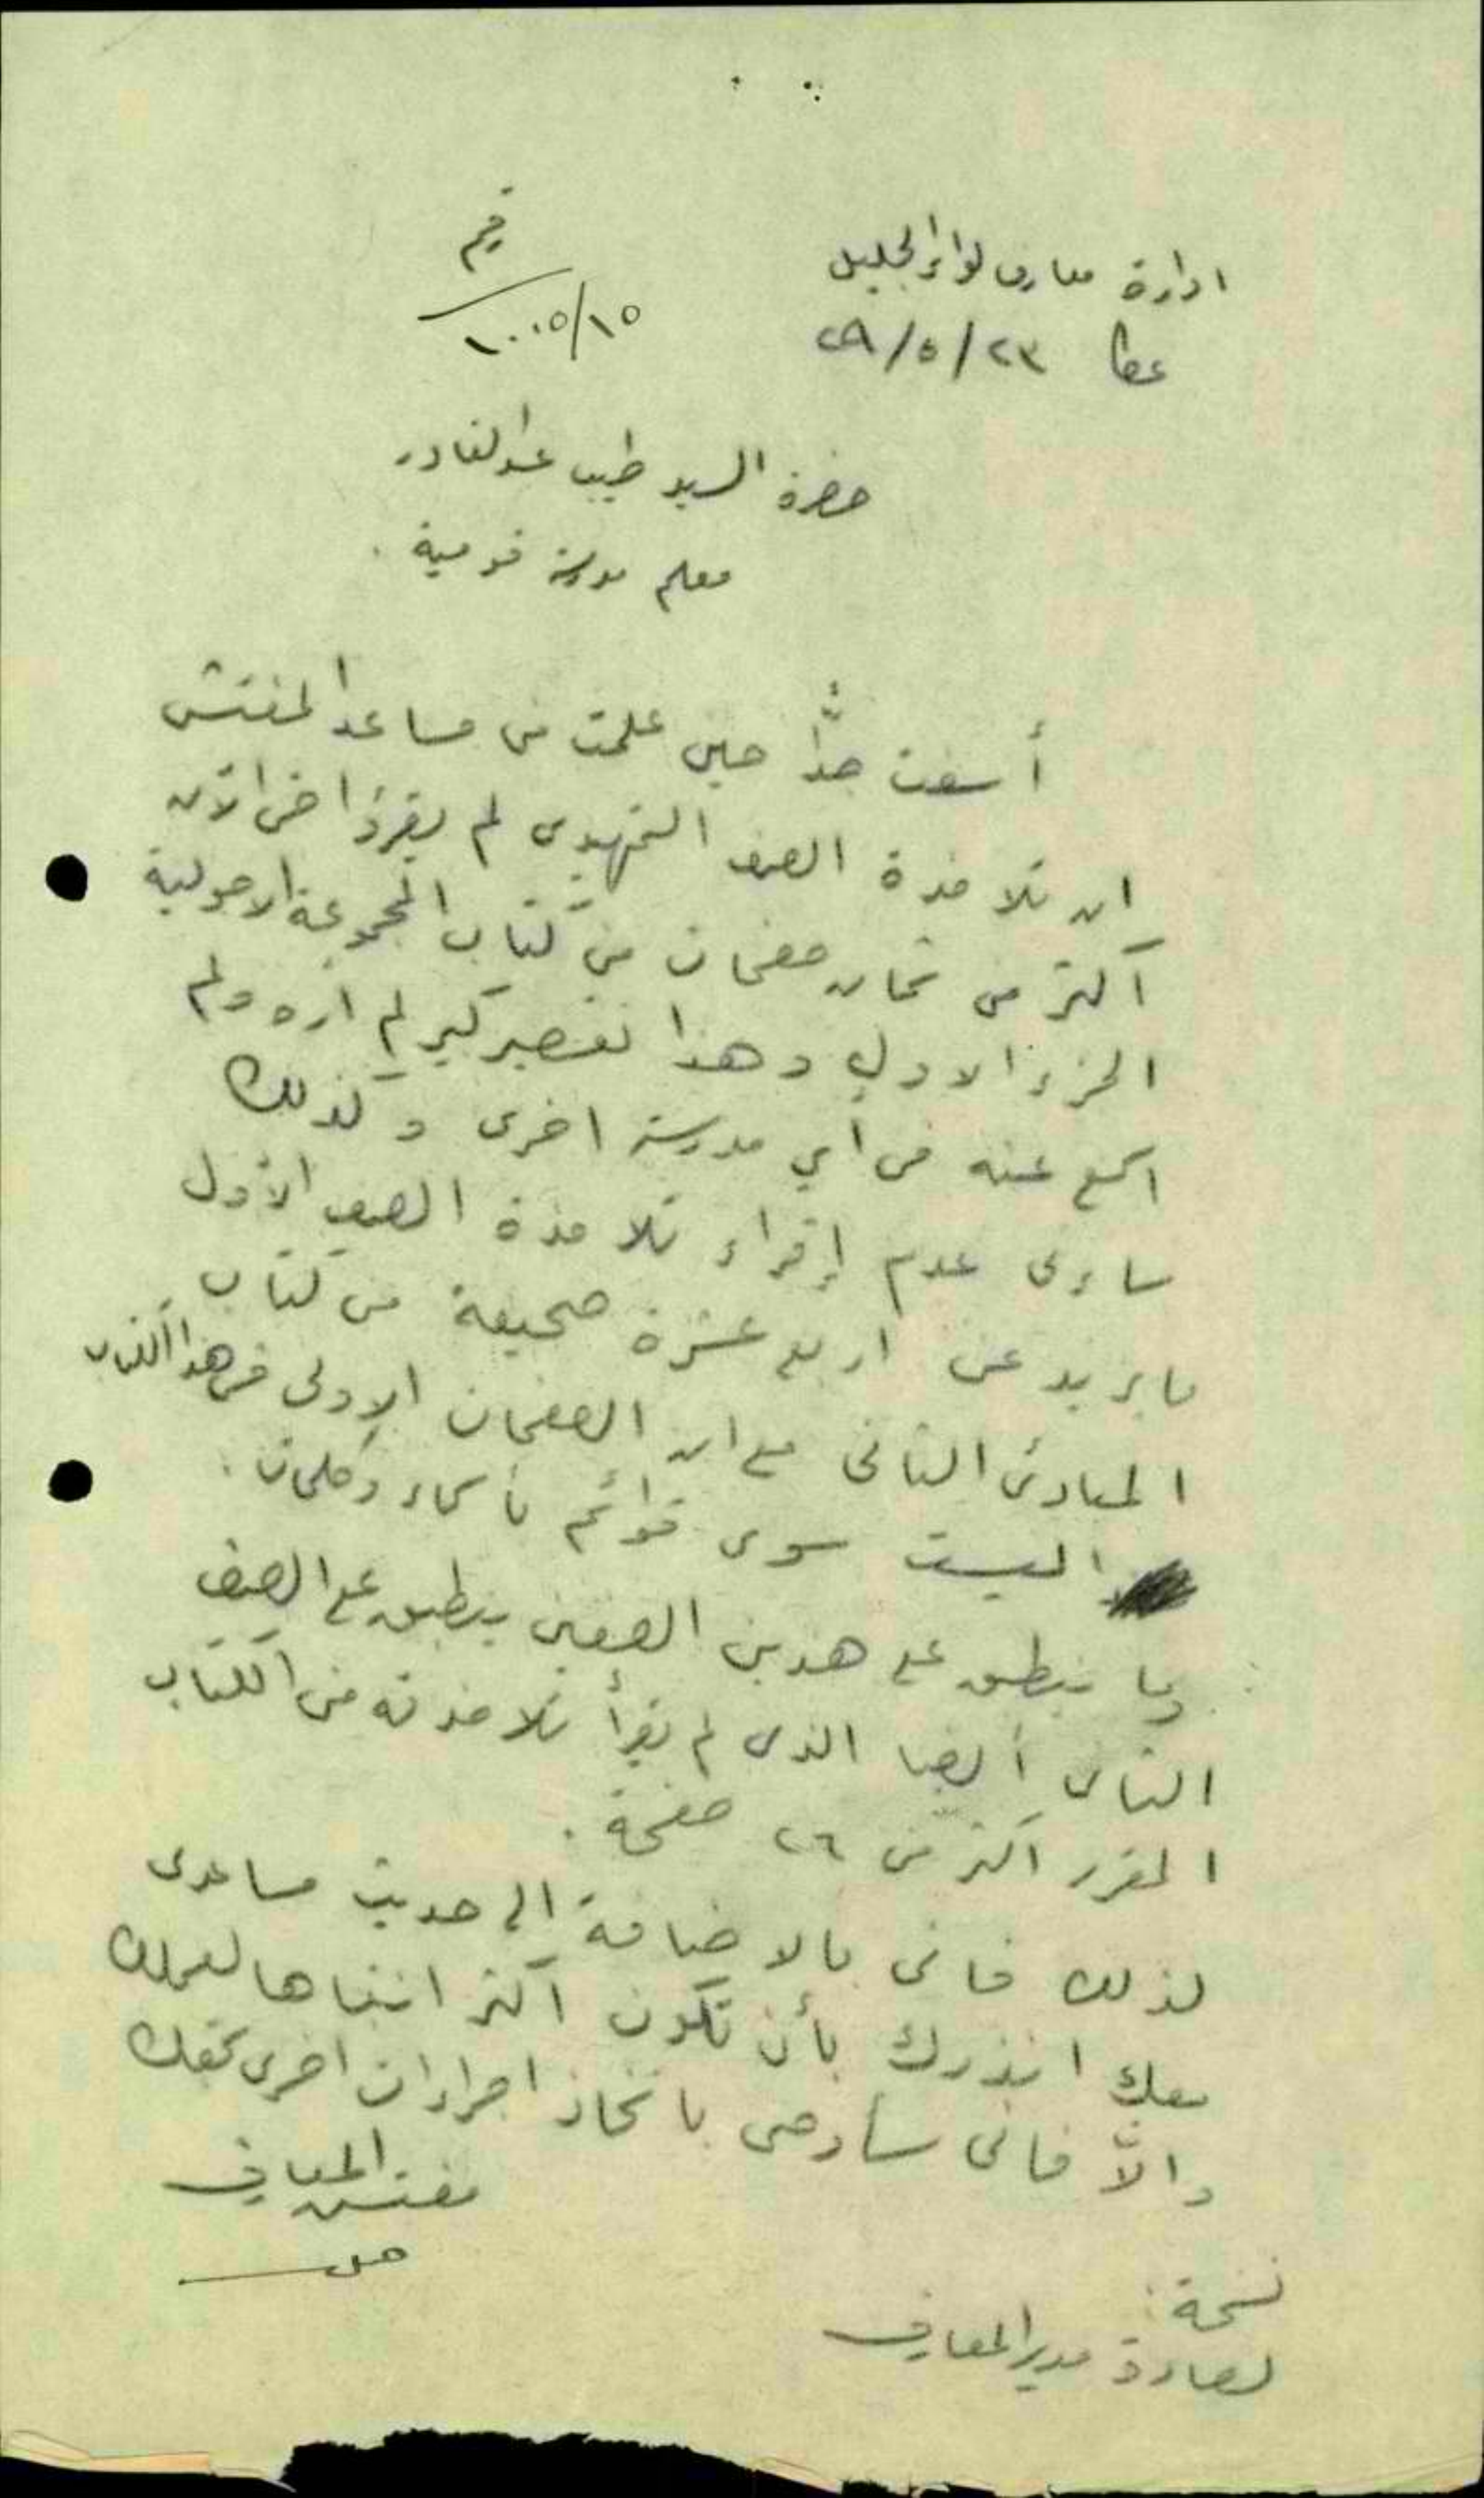 ادارة معارف لواء الجليل
عكا ٢٣/٥/٢٩
١٠٠٥/١٥
حضرة السيد طيب عبد القادر
معلم مدرسة قومية .
أسفت جدًّا حين علمت من مساعد المفتش
ان تلامذة الصف التمهيدى لم يقرؤا حتى الآن
اكثر من ثمان صفحات من كتاب المجموعة
الجزء الاول وهذا تقصير كبير لم اره ولم
اسمع عنه في أي مدرسة اخرى وكذلك
ساءنى عدم إقراء تلامذة الصف الأول
ما يزيد عن اربع عشرة صحيفة من كتاب
المبادئ الثانى مع ان الصفحات الاولى من هذا الكتاب
ليست سوى قوائم باسماء وكلمات .
وما ينطبق على هذين الصفين ينطبق على الصف
الثانى أيضا الذى لم يقرأ تلامذته من الكتاب
المقرر اكثر من ٢٦ صفحة .
لذلك فانى بالاضافة الى حديث مساعدى
معك انذرك بأن تكون اكثر انتباها لعملك
والاّ فانى سأوصى باتخاذ اجراءات اخرى بحقك
مفتش المعارف
نسخة :
لسعادة مدير المعارف